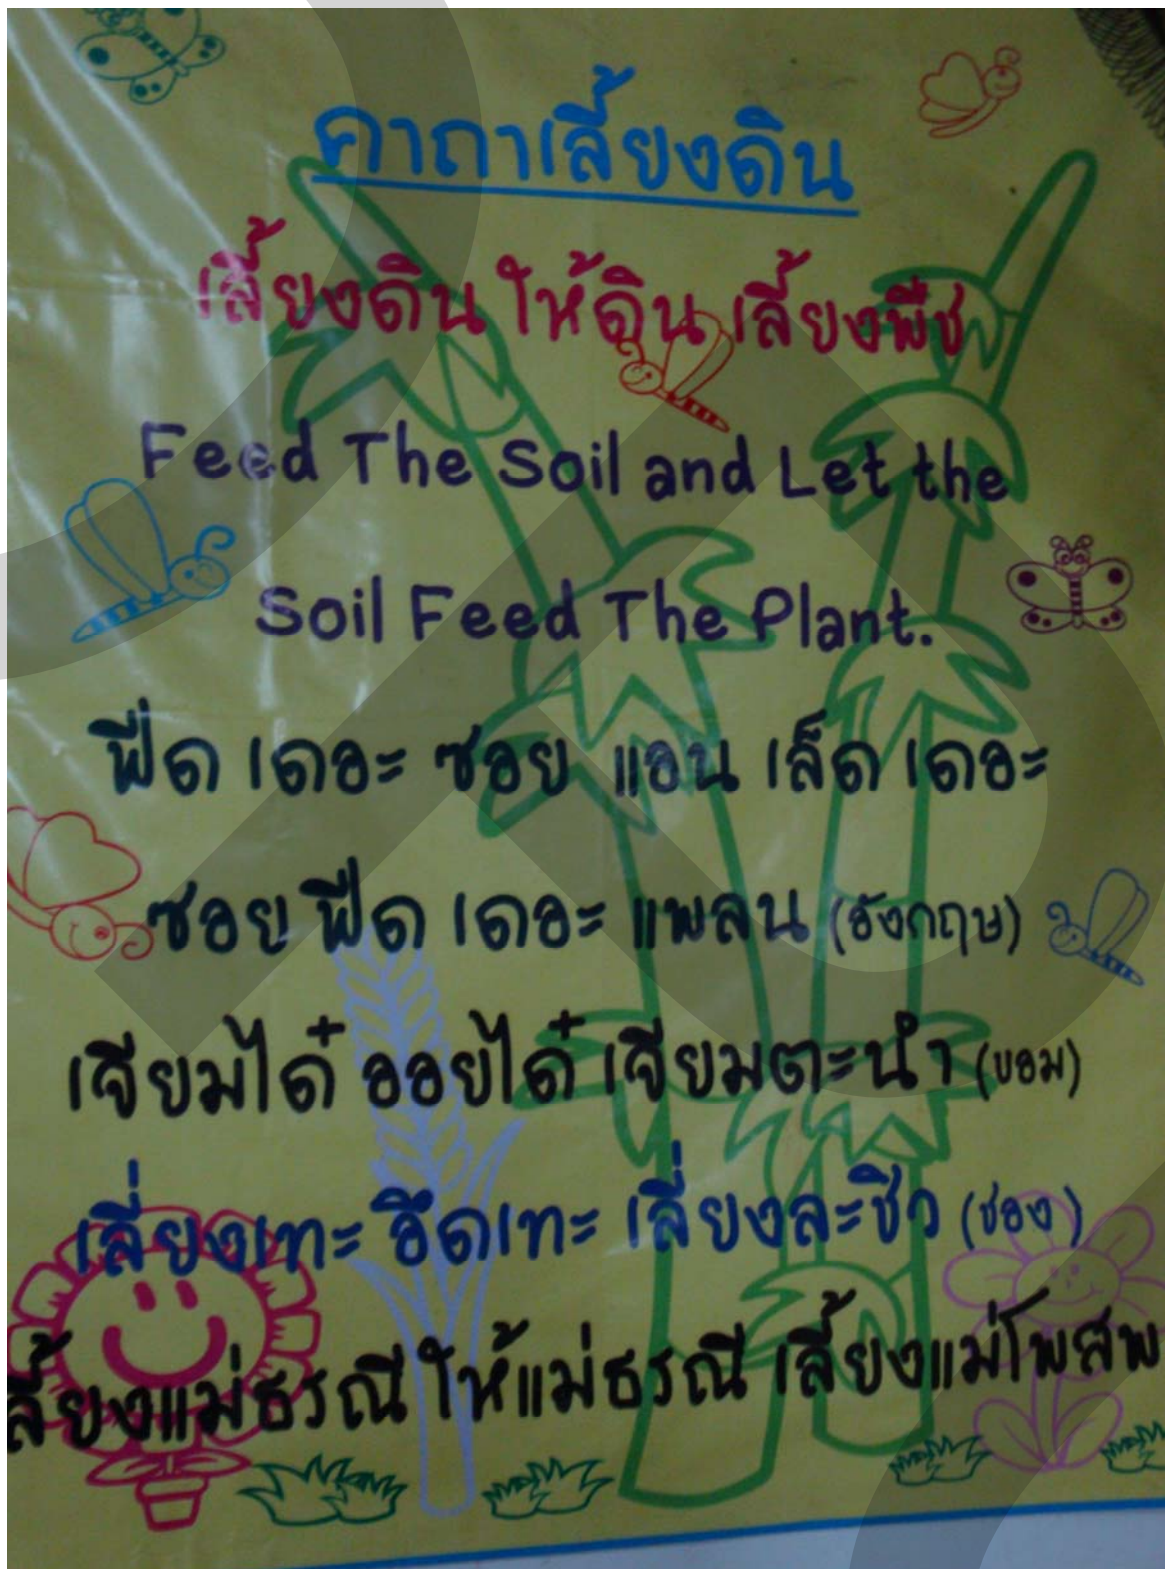 คาถาเลี้ยงดิน
เลี้ยงดิน ให้ดิน เลี้ยงพืช
Feed The Soil and Let the
Soil Feed The Plant.
ฟีด เดอะ ซอย แอน เล็ด เดอะ
ซอย ฟีด เดอะ แพลน (อังกฤษ)
เจียมได๋ ออยได๋ เจียมตะนำ (ขอม)
เลี่ยงเทะ อึดเทะ เลี่ยงละชิว (ชอง)
ลี้ยงแม่ธรณี ให้แม่ธรณี เลี้ยงแม่โพสพ